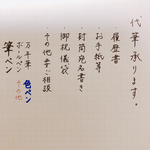 代筆承ります。
・履歴書
・お手紙等
・封筒宛名書き
・御祝儀袋
・その他要ご相談
万年筆
ボールペン
筆ペン
色ペン
その他